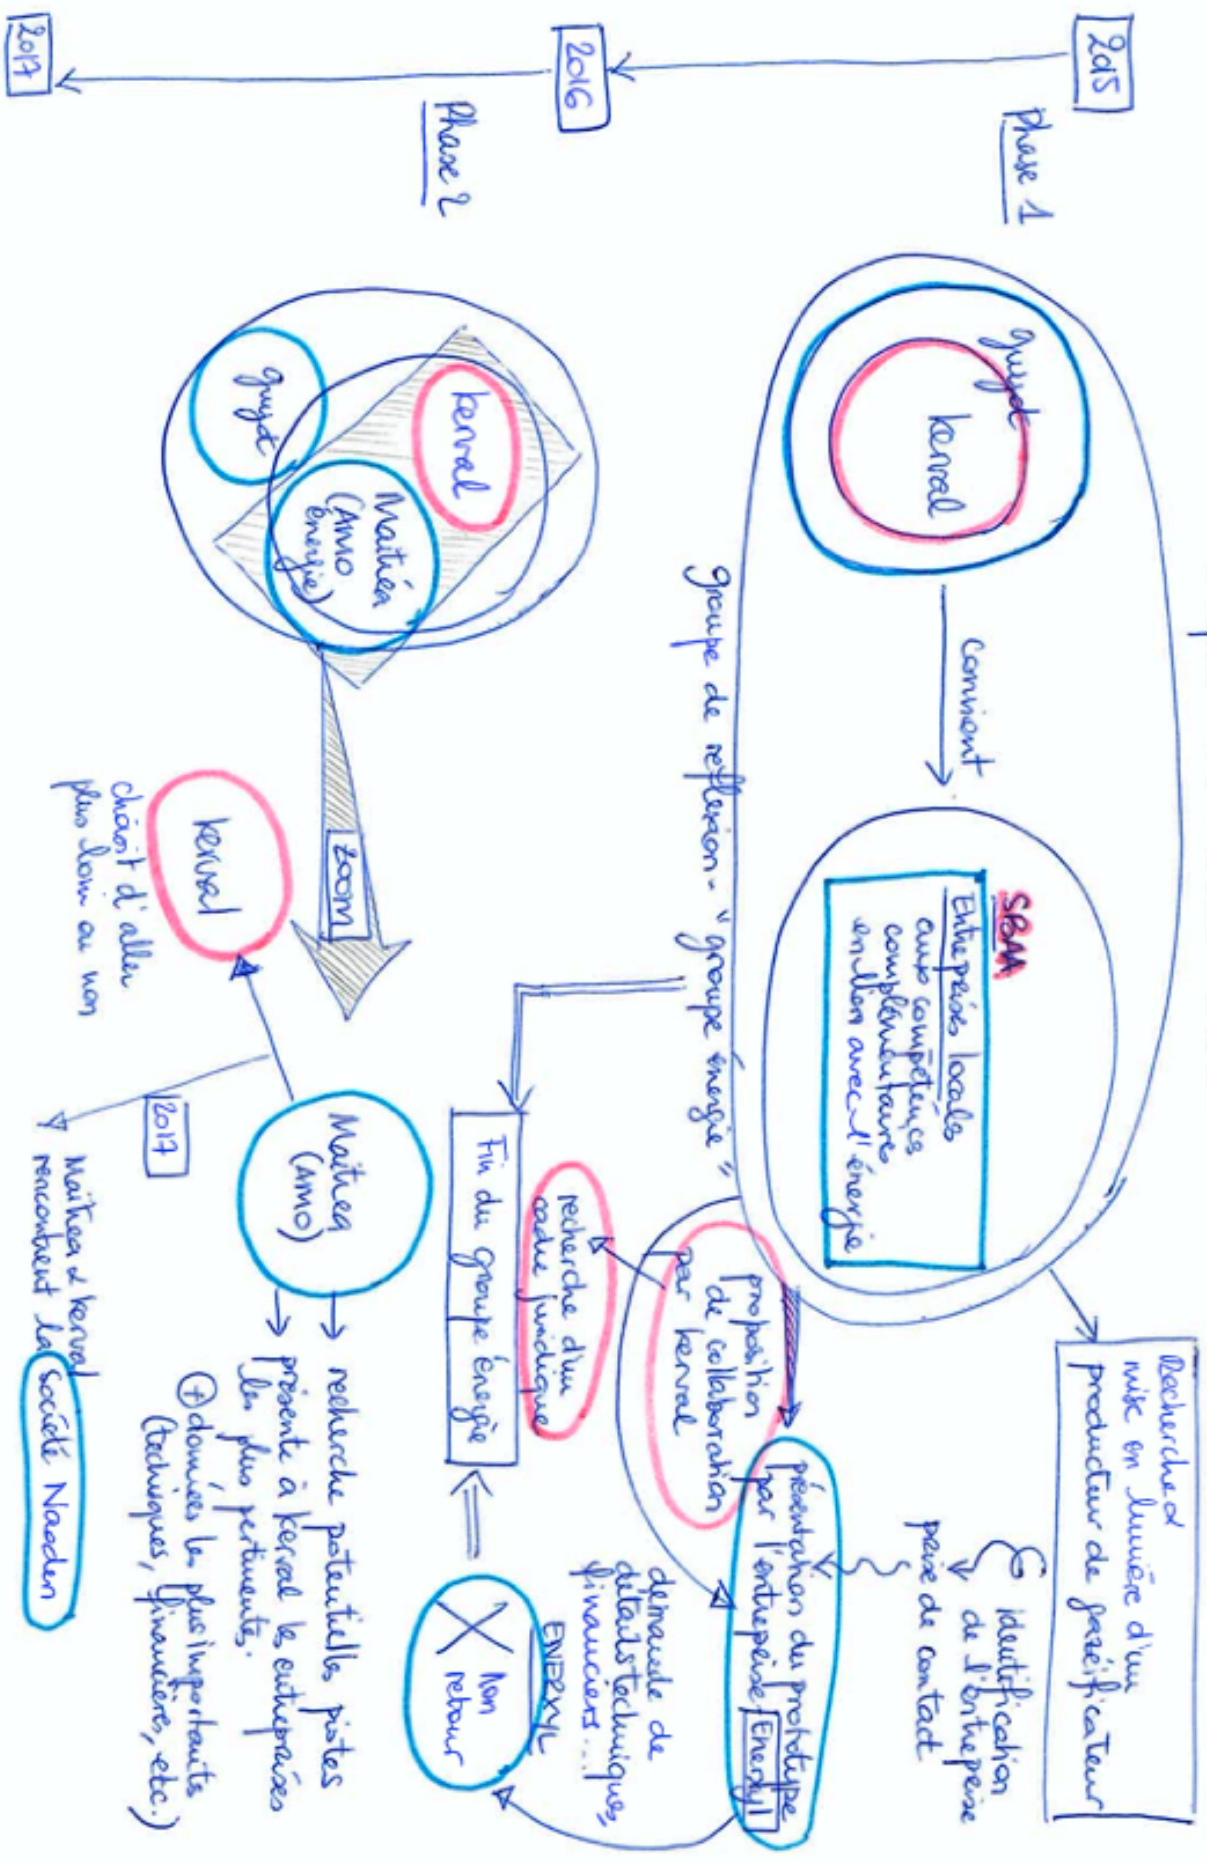 2015
Phase 1
2016
Phase 2
2017
guyot
kerval
convient
SBAA
Entreprises locales
aux compétences
complémentaires
en lien avec l'énergie
groupe de réflexion - "groupe énergie"
Recherche &
mise en lumière d'un
producteur de gazéificateur
identification
de l'entreprise
prise de contact
présentation du prototype
par l'entreprise Enerxyl
proposition
de collaboration
par kerval
recherche d'un
cadre juridique
demande de
détails techniques,
financiers...
ENERXYL
Non
retour
Fin du groupe énergie
kerval
Maitnéa
(AMO
énergie)
guyot
zoom
kerval
choisit d'aller
plus loin ou non
Maitnea
(AMO)
recherche potentielles pistes
présente à kerval les entreprises
les plus pertinentes.
+ données les plus importantes
(techniques, financières, etc.)
2017
Maitnea & kerval
rencontrent la société Naoden